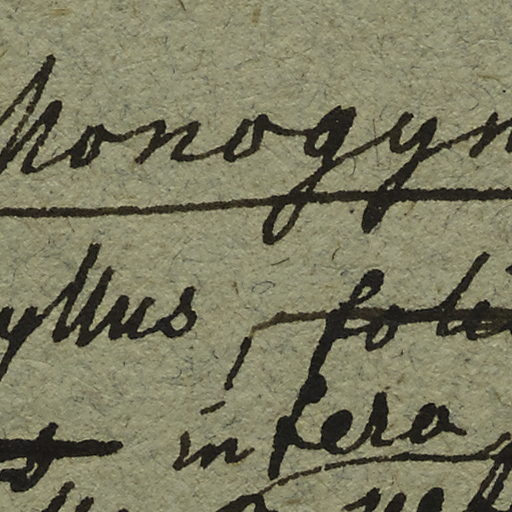 Monogyn
yllus, foli
infera